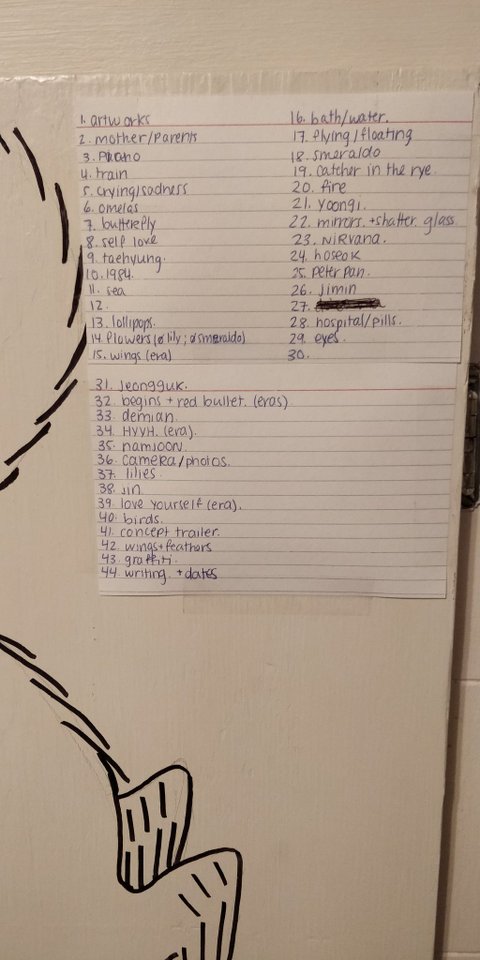 1. artworks
2. mother/parents
3. Piano
4. train
5. crying/sadness
6. omelas
7. butterfly
8. self love
9. taehyung.
10. 1984.
11. sea
12.
13. lollipops.
14. flowers (ø lily; ø smeraldo)
15. wings (era)
16. bath/water.
17. flying/floating
18. smeraldo
19. catcher in the rye.
20. fire
21. yoongi.
22. mirrors. + shatter. glass.
23. NIRvana.
24. hoseok
25. peter pan.
26. jimin
27.
28. hospital/pills.
29. eyes.
30.
31. jeongguk.
32. begins + red bullet. (eras)
33. demian.
34. HYYH. (era).
35. namjoon.
36. camera/photos.
37. lilies.
38. jin.
39. love yourself (era).
40. birds.
41. concept trailer.
42. wings+feathers
43. graffiti.
44. writing. + dates